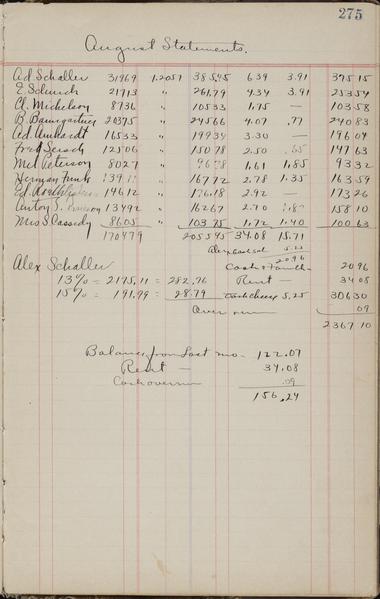 275
August Statements.
Ad Schaller 31969 1.2057 385.45 6.39 3.91 375 15
E. Schurch 21713 " 261.79 4.34 3.91 253 54
Cl. Mickelson 8736 " 105 33 1.75 — 103 58
B. Baumgartner 20375 " 245 66 4.07 .77 240 83
Ad Amhardt 16533 " 199 34 3.30 — 196 04
Fred Gersch 12506 " 150 78 2.50 .65 147 63
Mel Peterson 8027 " 96 78 1.61 1.85 93 32
Herman Funk " 167 72 2.78 1.35 163 59
Ed 14612 " 176.18 2.92 — 173 26
Anton S. 13492 " 162 67 2.70 158 10
Mrs S Cassidy 86.05 " 103 75 1.72 1.40 100 63
170479 2055 45 34.08 15.71
5.25
Alex Schaller Cash + 20.96 20 96
13% = 2175.11 = 282.76 Rent — 34 08
15% = 191.99 = 28.79 Cash cheese 5.25 306 30
Over run 09
2367 10
Balance from Last mo. 122.07
Rent — 34.08
Cash overrun .09
156.24